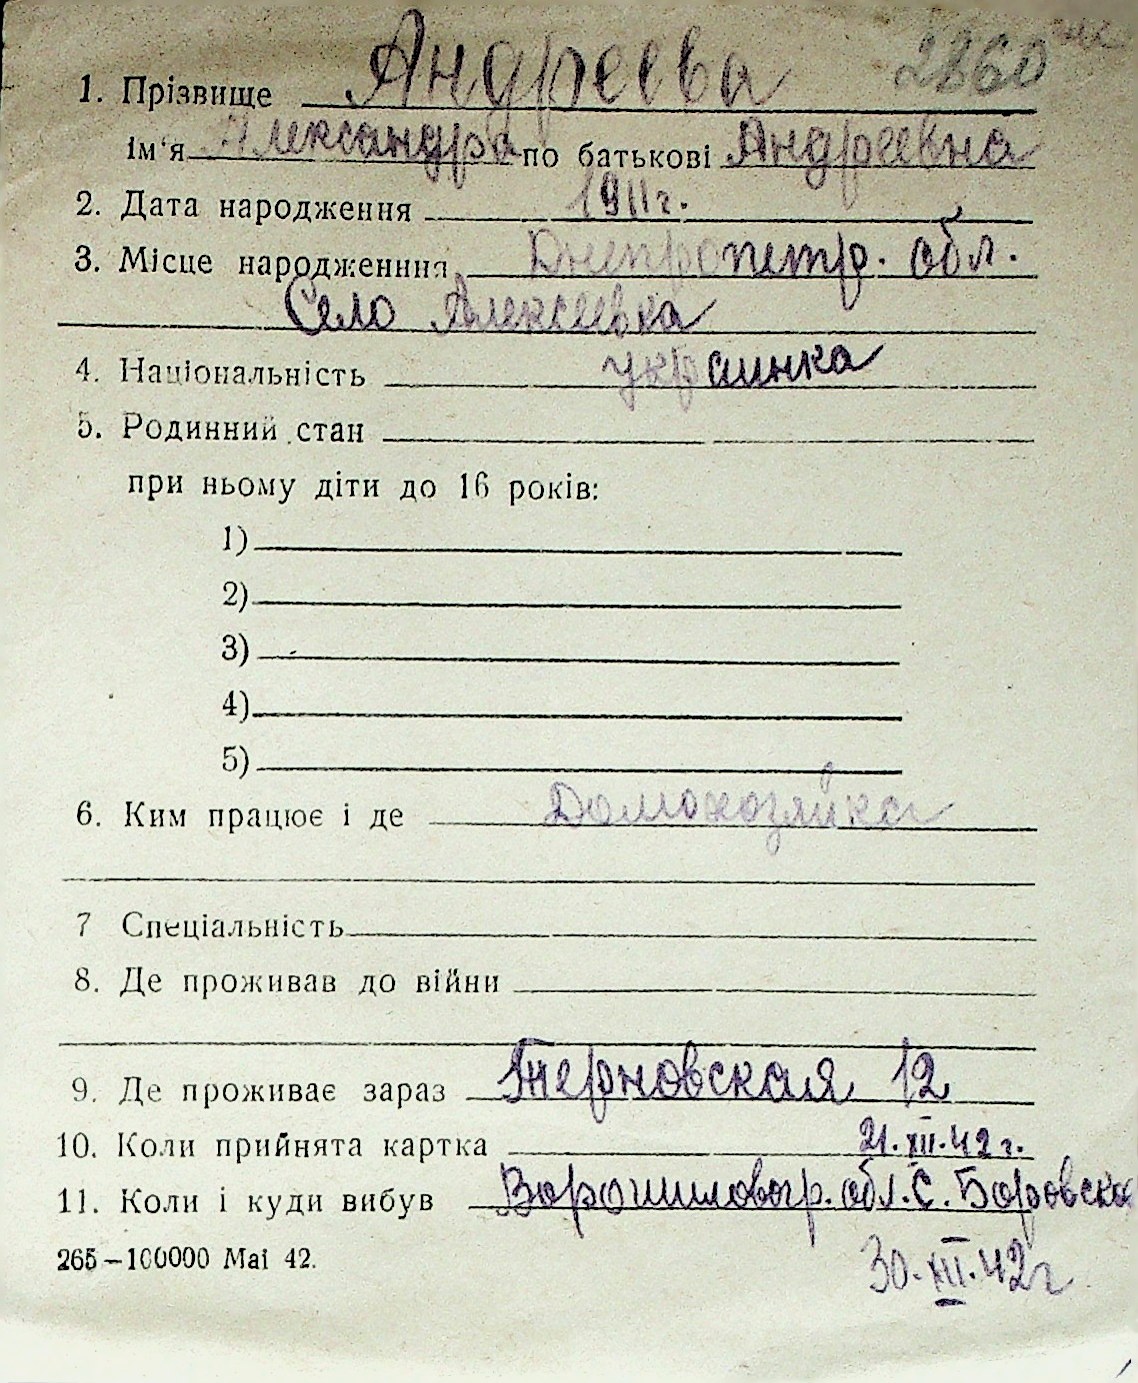 2860
1. Прізвище Андреева
ім'я Александра по батькові Андреевна
2. Дата народження 1911 г.
3. Місце народженння Днепропетр. обл.
Село Алексеевка
4. Національність украинка
5. Родинний стан
при ньому діти до 16 років:
1)
2)
3)
4)
5)
6. Ким працює і де Домохозяйка
7 Спеціальність
8. Де проживав до війни
9. Де проживає зараз Терновская 12
10. Коли прийнята картка 21.XII.42 г.
11. Коли і куди вибув Ворошиловогр. обл. С. Боровска
265—100000 Mai 42.
30.XII.42 г